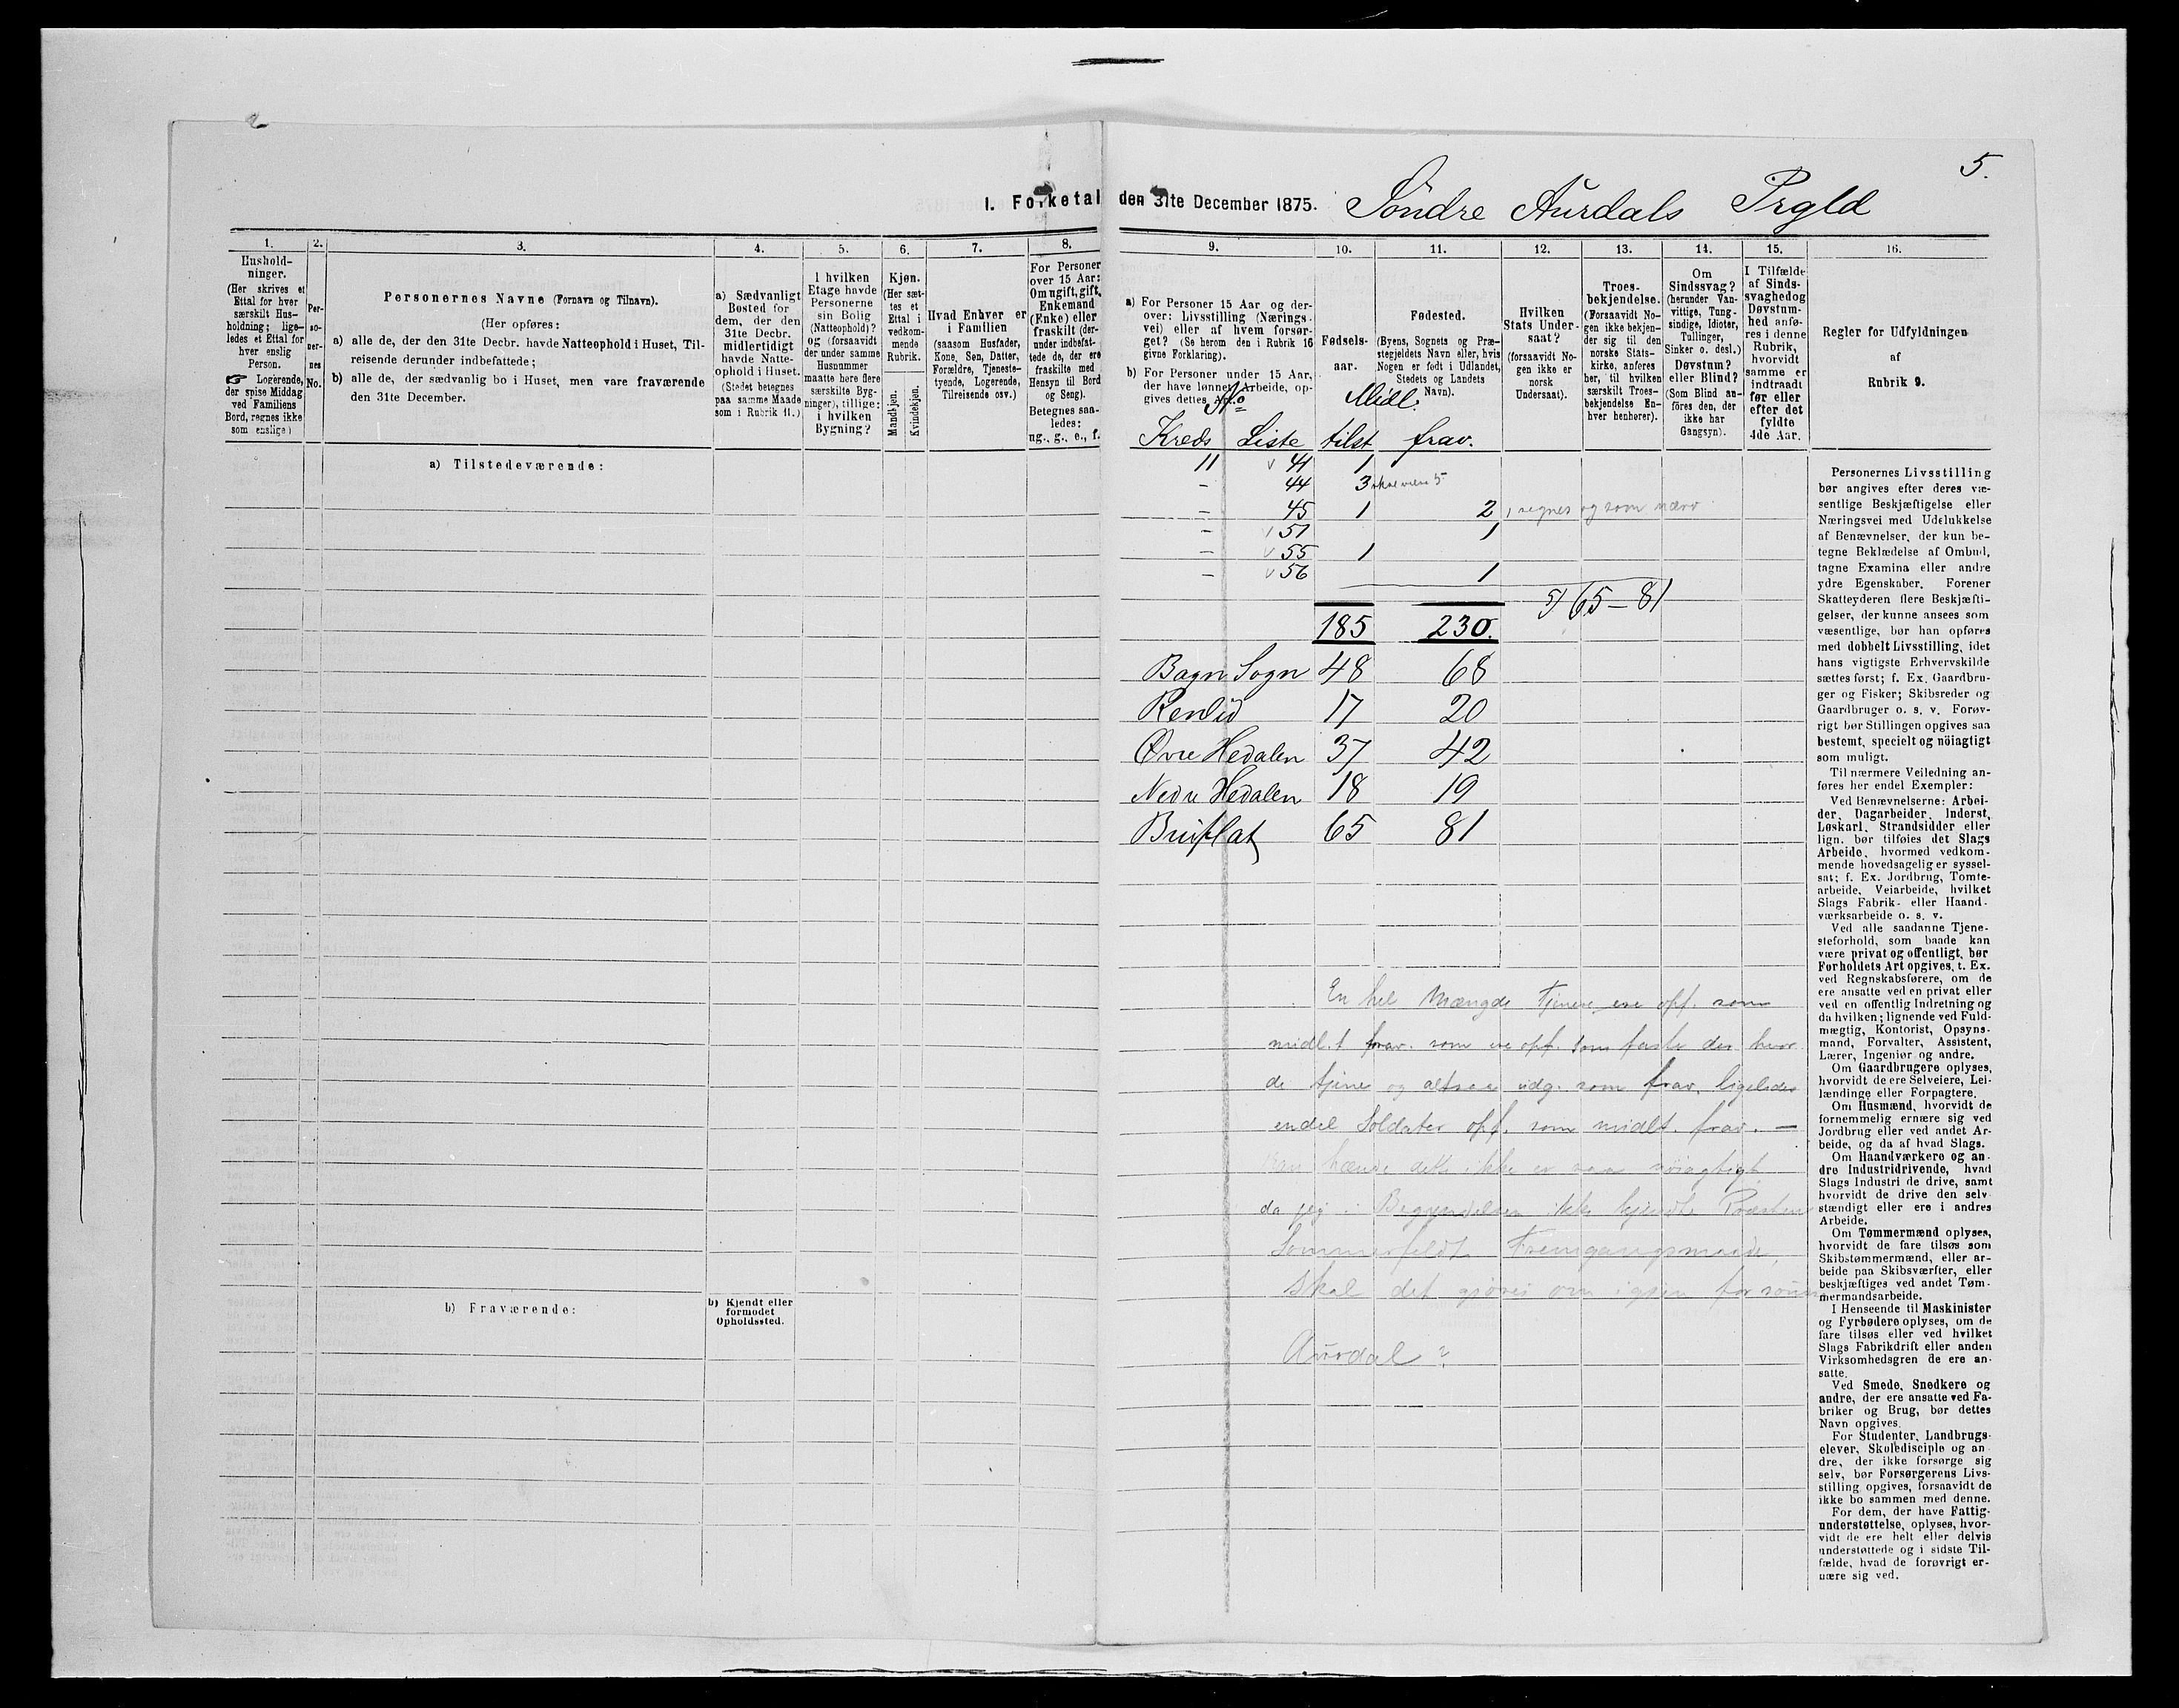 5.
I. Folketal den 31te December 1875. Söndre Aurdals Prgld
1.
Hushold-
ninger.
(Her skrives et
Ettal for hver
særskilt Hus-
holdning; lige-
ledes et Ettal for
hver enslig
Person.
☞ Logerende,
der spise Middag
ved Familiens
Bord, regnes ikke
som enslige)
2.
Per-
so-
ner-
nes
No.
3.
Personernes Navne (Fornavn og Tilnavn).
(Her opføres:
a) alle de, der den 31te Decbr. havde Natteophold i Huset, Til-
reisende derunder indbefattede;
b) alle de, der sædvanlig bo i Huset, men vare fraværende
den 31te December.
4.
a) Sædvanligt
Bosted for
dem, der den
31te Decbr.
midlertidigt
havde Natte-
ophold i Huset.
(Stedet betegnes
paa samme Maade
som i Rubrik 11.)
5.
I hvilken
Etage havde
Personerne
sin Bolig
(Natteophold)?
og (forsaavidt
der under samme
Husnummer
maatte høre flere
særskilte Byg-
ninger), tillige:
i hvilken
Bygning?
6.
Kjøn.
(Her sæt-
tes et
Ettal i
vedkom-
mende
Rubrik.
Mandkjøn.
Kvindekjøn.
7.
Hvad Enhver er
i Familien
(saasom Husfader,
Kone, Søn, Datter,
Forældre, Tjeneste-
tyende, Logerende,
Tilreisende osv.)
8.
For Personer
over 15 Aar:
Om ugift, gift,
Enkemand
(Enke) eller
fraskilt (der-
under indbefat-
tede de, der ere
fraskilte med
Hensyn til Bord
og Seng).
Betegnes saa-
ledes:
ug., g., e., f.
9.
a) For Personer 15 Aar og der-
over: Livsstilling (Nærings-
vei) eller af hvem forsør-
get? (Se herom den i Rubrik 16
givne Forklaring).
b) For Personer under 15 Aar,
der have lønnet Arbeide, op-
gives dettes Art.
10.
Fødsels-
aar.
11.
Fødested.
(Byens, Sognets og Præ-
stegjeldets Navn eller, hvis
Nogen er født i Udlandet,
Stedets og Landets
Navn).
12.
Hvilken
Stats Under-
saat?
(forsaavidt No-
gen ikke er
norsk
Undersaat).
13.
Troes-
bekjendelse.
(Forsaavidt No-
gen ikke bekjen-
der sig til den
norske Stats-
kirke, anføres
her, til hvilken
særskilt Troes-
bekjendelse En-
hver henhører).
14.
Om
Sindssvag?
(herunder Van-
vittige, Tung-
sindige, Idioter,
Tullinger,
Sinker o. desl.)
Døvstum?
eller Blind?
(Som Blind an-
føres den, der
ikke har
Gangsyn).
15.
I Tilfælde
af Sinds-
svaghed og
Døvstum-
hed anfø-
res i denne
Rubrik,
hvorvidt
samme er
indtraadt
før eller
efter det
fyldte
4de Aar.
16.
Regler for Udfyldningen
af
Rubrik 9.
a) Tilstedeværende:
No Midl.
Kreds Liste tilst frav.
11 v 41 1
– 44 3 skal være 5
– 45 1 2 1 regnes og som nærv
– v 51 1
– v 55 1
– v 56 1
5) 65 – 81
185 230.
Bagn Sogn 48 68
Renlid 17 20
Øvre Hedalen 37 42
Nedre Hedalen 18 19
Bruflat 65 81
En hel Mængde Tjenere ere opf. som
midl.t frav. som ere opf. som faste der hvor
de tjene og altsaa udg. som frav. ligeledes
endel Soldater opf. som midlt. frav. —
hænde dette ikke er saa nöiagtigt
da jeg i Begyndelsen ikke kjendte Præsten
Sommerfeldts Fremgangsmaade,
Skal det gjöres om igjen for
Aurdal?
b) Fraværende:
b) Kjendt eller
formodet
Opholdssted.
Personernes Livsstilling
bør angives efter deres væ-
sentlige Beskjæftigelse eller
Næringsvei med Udelukkelse
af Benævnelser, der kun be-
tegne Beklædelse af Ombud,
tagne Examina eller andre
ydre Egenskaber. Forener
Skatteyderen flere Beskjæfti-
gelser, der kunne ansees som
væsentlige, bør han opføres
med dobbelt Livsstilling, idet
hans vigtigste Erhvervskilde
sættes først; f. Ex. Gaardbru-
ger og Fisker; Skibsreder og
Gaardbruger o. s. v. Forøv-
rigt bør Stillingen opgives saa
bestemt, specielt og nöiagtigt
som muligt.
Til nærmere Veiledning an-
føres her endel Exempler:
Ved Benævnelserne: Arbei-
der, Dagarbeider, Inderst,
Løskarl, Strandsidder eller
lign. bør tilføies det Slags
Arbeide, hvormed vedkom-
mende hovedsagelig er syssel-
sat; f. Ex. Jordbrug, Tomte-
arbeide, Veiarbeide, hvilket
Slags Fabrik- eller Haand-
værksarbeide o. s. v.
Ved alle saadanne Tjene-
steforhold, som baade kan
være privat og offentligt, bør
Forholdets Art opgives, t. Ex.
ved Regnskabsførere, om de
ere ansatte ved en privat eller
ved en offentlig Indretning og
da hvilken; lignende ved Fuld-
mægtig, Kontorist, Opsyns-
mand, Forvalter, Assistent,
Lærer, Ingeniør og andre.
Om Gaardbrugere oplyses,
hvorvidt de ere Selveiere, Lei-
lændinge eller Forpagtere.
Om Husmænd, hvorvidt de
fornemmelig ernære sig ved
Jordbrug eller ved andet Ar-
beide, og da af hvad Slags.
Om Haandværkere og an-
dre Industridrivende, hvad
Slags Industri de drive, samt
hvorvidt de drive den selv-
stændigt eller ere i andres
Arbeide.
Om Tømmermænd oplyses,
hvorvidt de fare tilsøs som
Skibstømmermænd, eller ar-
beide paa Skibsværfter, eller
beskjæftiges ved andet Tøm-
mermandsarbeide.
I Henseende til Maskinister
og Fyrbødere oplyses, om de
fare tilsøs eller ved hvilket
Slags Fabrikdrift eller anden
Virksomhedsgren de ere an-
satte.
Ved Smede, Snedkere og
andre, der ere ansatte ved Fa-
briker og Brug, bør dettes
Navn opgives.
For Studenter, Landbrugs-
elever, Skoledisciple og an-
dre, der ikke forsørge sig
selv, bør Forsørgerens Livs-
stilling opgives, forsaavidt de
ikke bo sammen med denne.
For dem, der have Fattig-
understøttelse, oplyses, hvor-
vidt de ere helt eller delvis
understøttede og i sidste Til-
fælde, hvad de forøvrigt er-
nære sig ved.